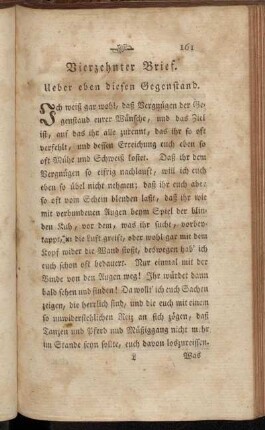 161
Vierzehnter Brief.
Ueber eben diesen Gegenstand.
Ich weiß gar wohl, daß Vergnügen der Ge-
genstand eurer Wünsche, und das Ziel
ist, auf das ihr alle zurennt, das ihr so oft
verfehlt, und dessen Erreichung euch eben so
oft Mühe und Schweiß kostet. Daß ihr dem
Vergnügen so eifrig nachlauft, will ich euch
eben so übel nicht nehmen; daß ihr euch aber
so oft vom Schein blenden laßt, daß ihr wie
mit verbundenen Augen beym Spiel der blin-
den Kuh, vor dem, was ihr sucht, vorbey-
tappt, in die Luft greift, oder wohl gar mit dem
Kopf wider die Wand stoßt, deswegen hab' ich
euch schon oft bedauert. Nur einmal mit der
Binde von den Augen weg! Ihr würdet dann
bald sehen und finden! Da wollt' ich euch Sachen
zeigen, die herrlich sind, und die euch mit einem
so unwiderstehlichen Reiz an sich zögen, daß
Tanzen und Pferd und Müßiggang nicht mehr
im Stande seyn sollte, euch davon loszureissen.
L Was